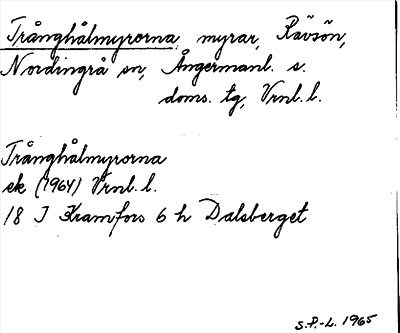 Trånghålmyrorna, myrar, Rävsön,
Nordingrå sn, Ångermanl. s.
doms. tg, Vrnl. l.
Trånghålmyrorna
ek (1964) Vrnl. l.
18 I Kramfors 6 h Dalsberget
S.P.-L. 1965